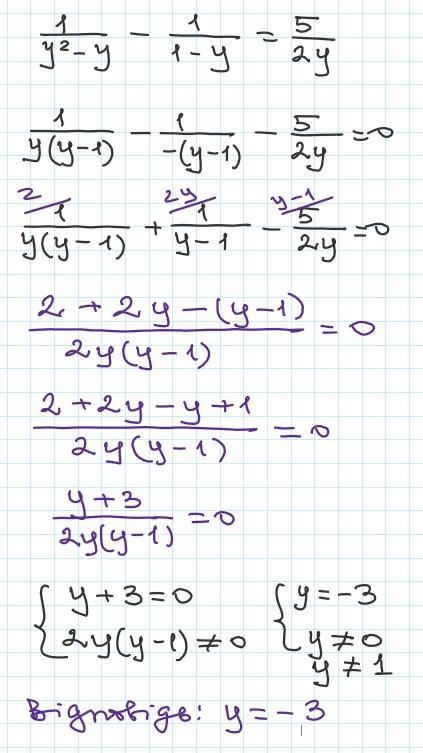 1/(y² - y) - 1/(1 - y) = 5/(2y)
1/(y(y-1)) - 1/(-(y-1)) - 5/(2y) = 0
2/ 1/(y(y-1)) + 2y/ 1/(y-1) - y-1/ 5/(2y) = 0
(2 + 2y - (y-1))/(2y(y-1)) = 0
(2 + 2y - y + 1)/(2y(y-1)) = 0
(y+3)/(2y(y-1)) = 0
{ y + 3 = 0 { y = -3
2y(y-1) ≠ 0 y ≠ 0
y ≠ 1
Відповідь: y = -3